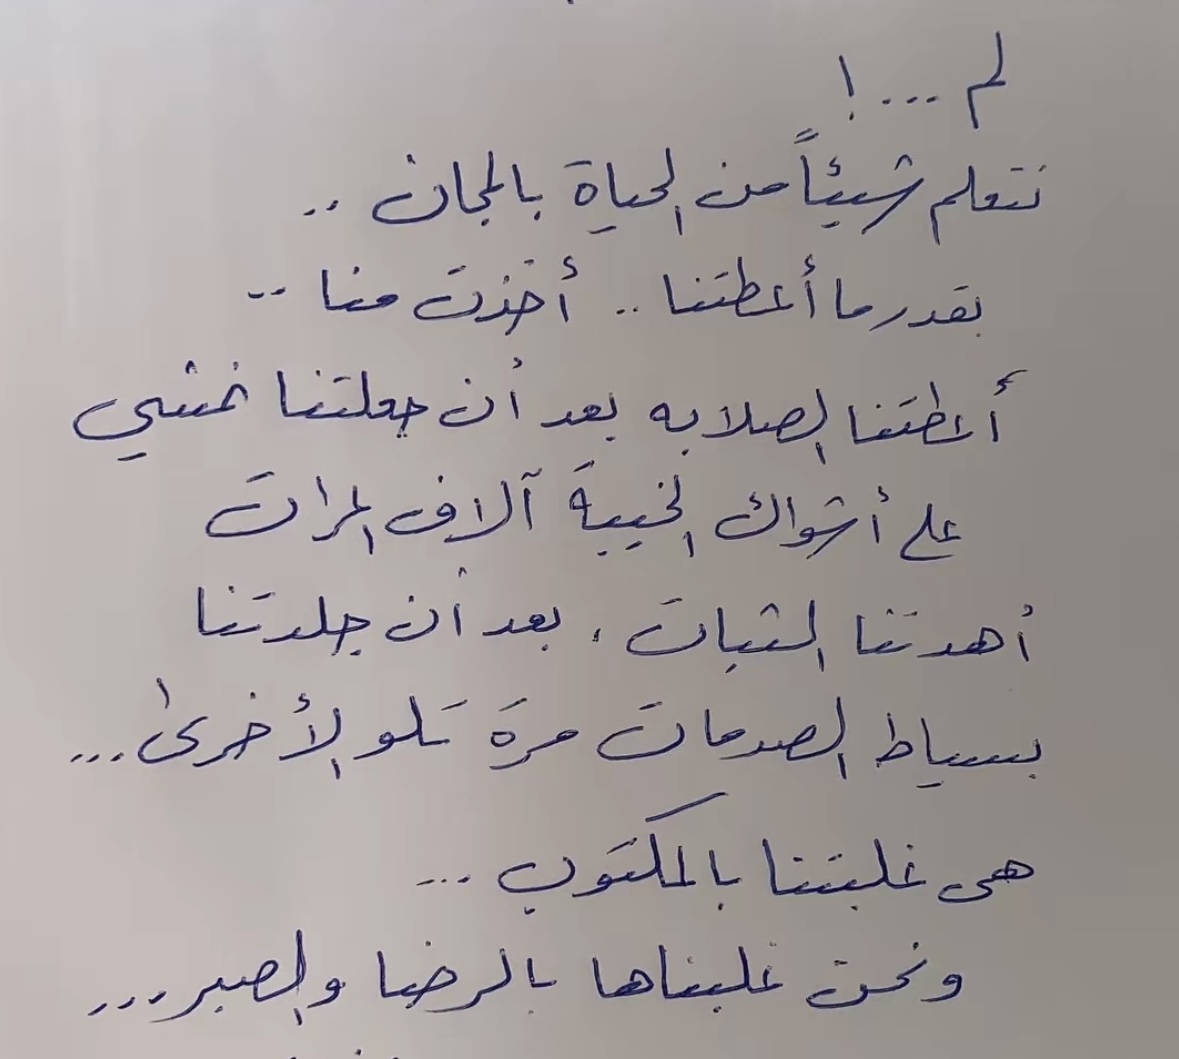 لم ...!
نتعلم شيئاً من الحياة بالمجان ..
بقدر ما أعطتنا .. أخذت منا ..
أعطتنا الصلابه بعد أن جعلتنا نمشي
على أشواك الخيبة آلاف المرات
أهدتنا الثبات ، بعد أن جلدتنا
بسياط الصدمات مرة تلو الأخرى ...
هى غلبتنا بالمكتوب ...
ونحن غلبناها بالرضا والصبر ...